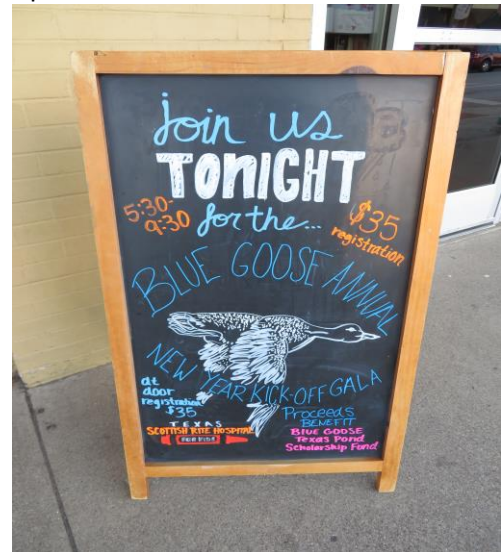 join us
TONIGHT
5:30-
9:30
for the...
$35
registration
BLUE GOOSE ANNUAL
NEW YEAR KICK-OFF GALA
at
door
registration
$35
TEXAS
SCOTTISH RITE HOSPITAL
FOR KIDS
Proceeds
BENEFIT
BLUE GOOSE
Texas Pond
Scholarship Fund